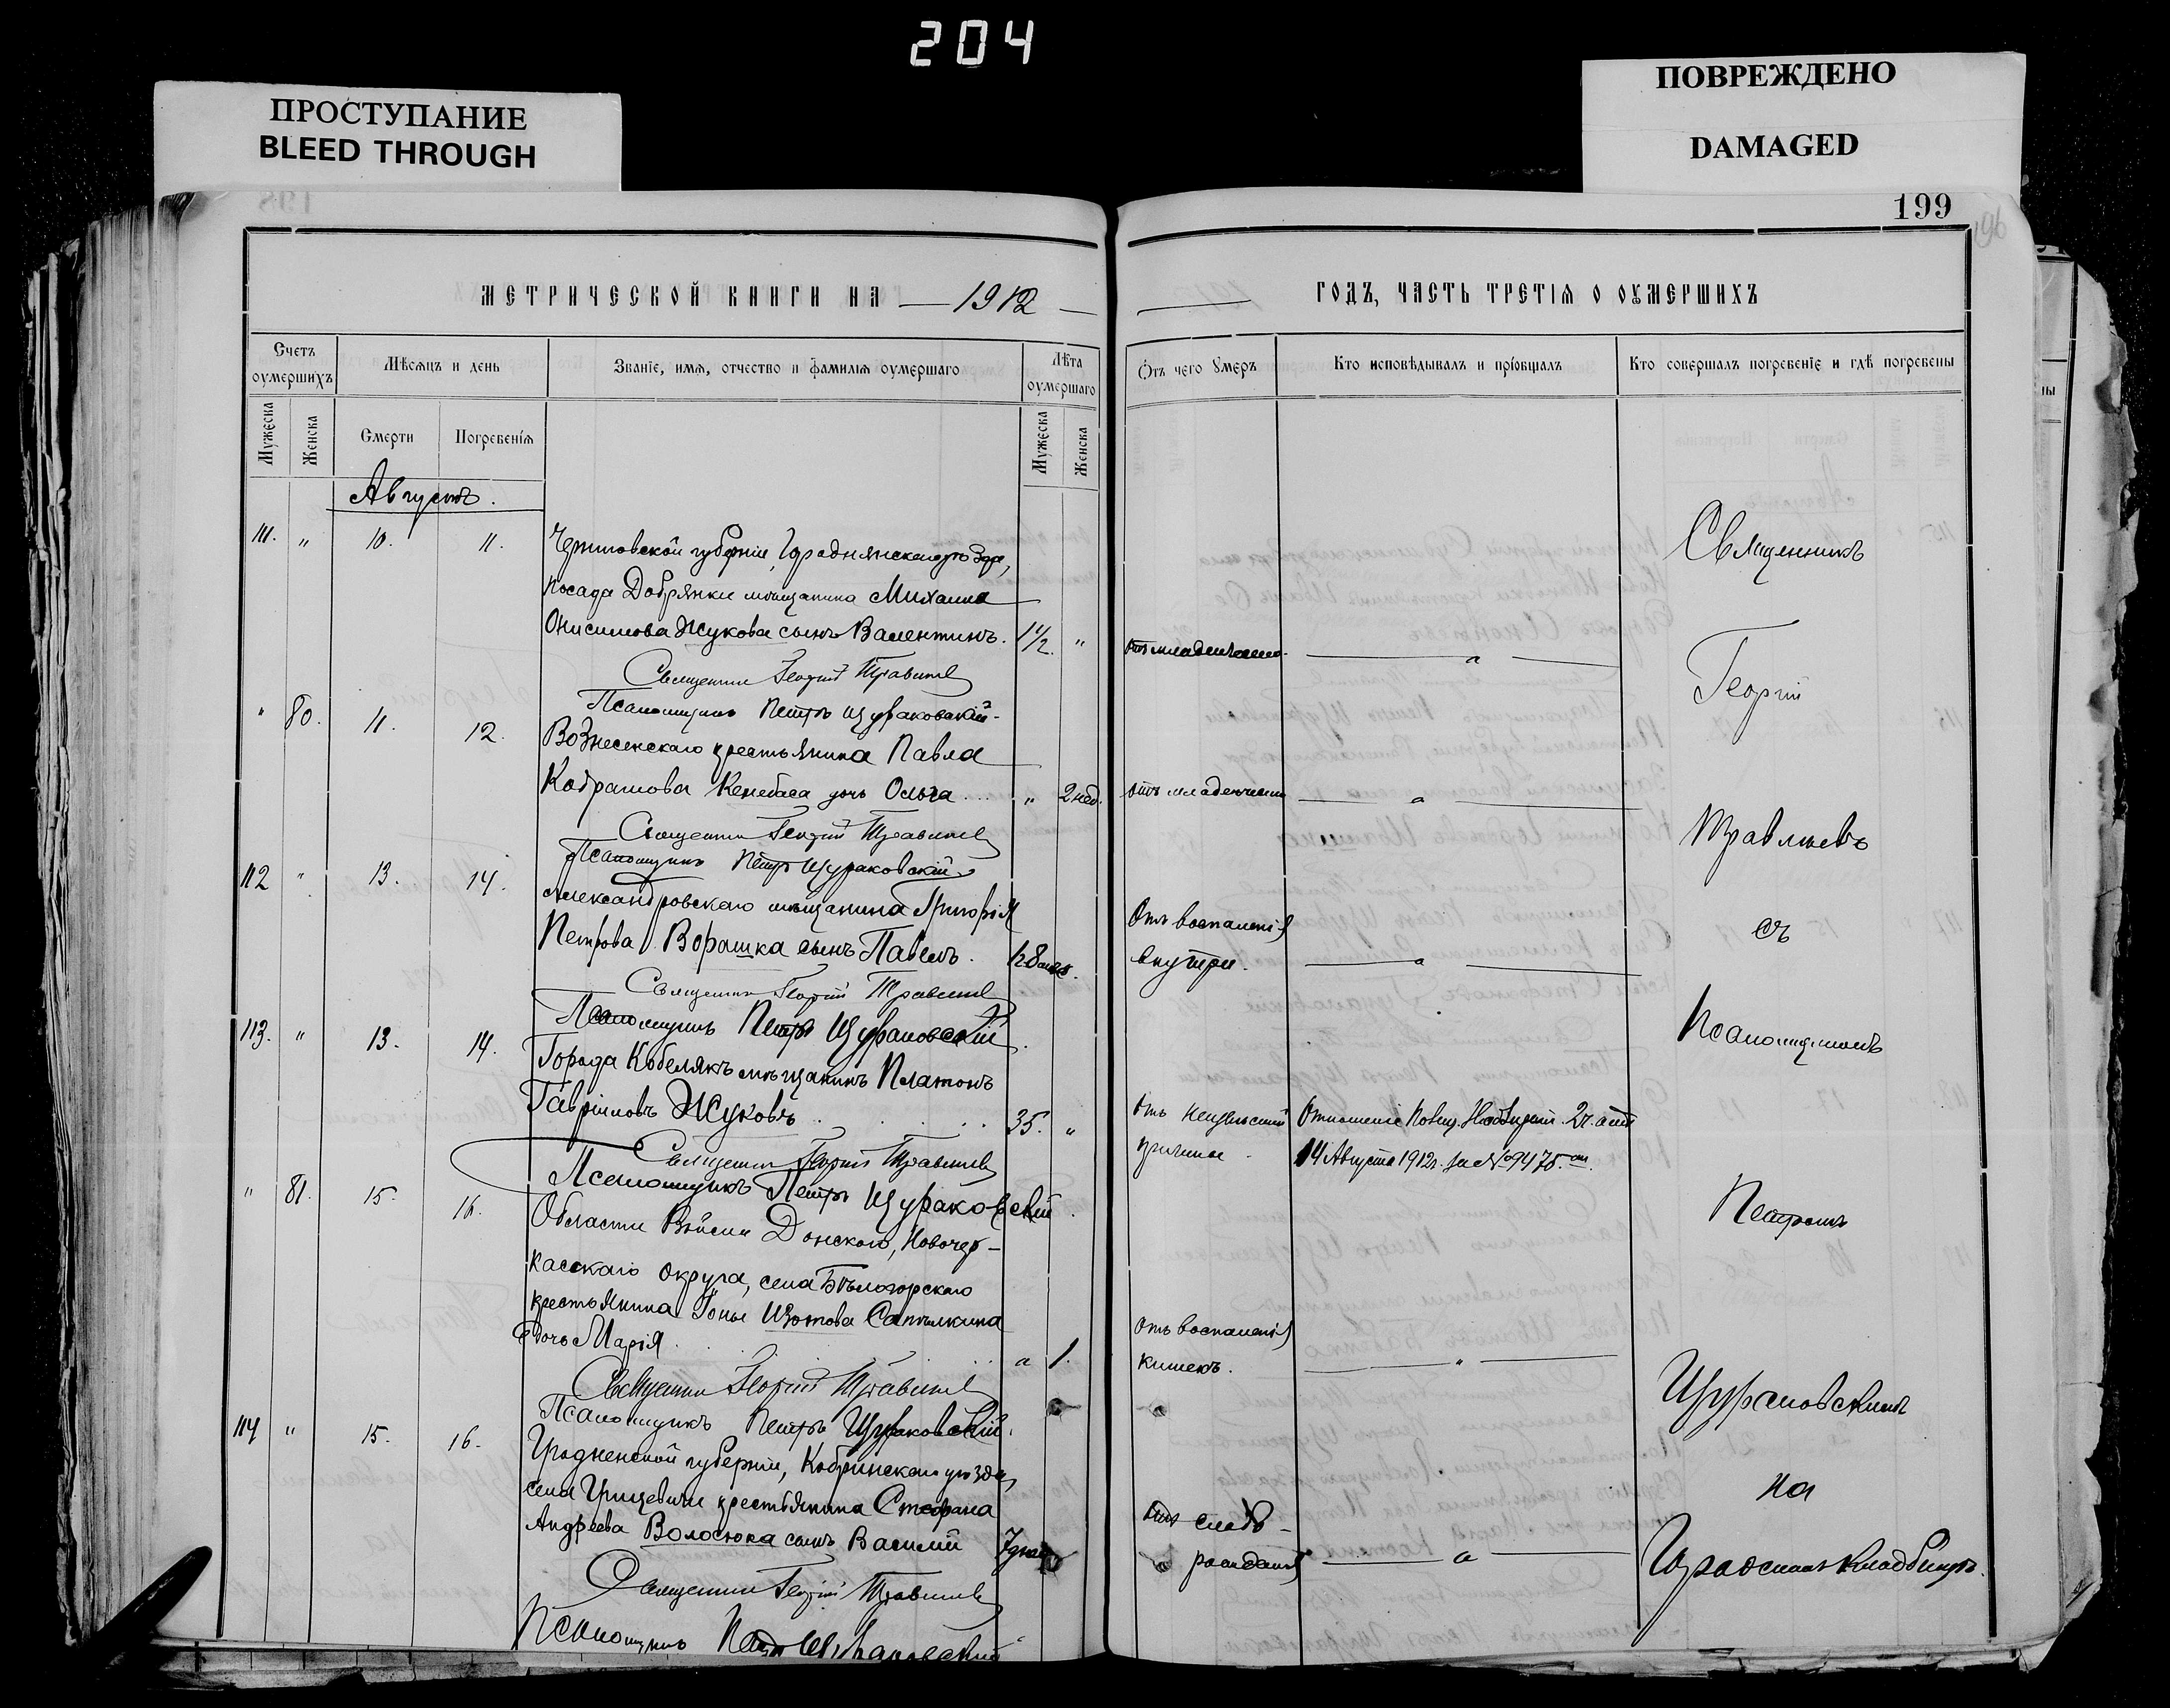 204
ПРОСТУПАНИЕ
BLEED THROUGH
ПОВРЕЖДЕНО
DAMAGED
199
196
МЕТРИЧЕСКОЙ КНИГИ НА 1912
ГОДЪ, ЧАСТЬ ТРЕТІЯ О ОУМЕРШИХЪ
Счетъ оумершихъ
Мѣсяцъ и день
Званіе, имя, отчество и фамилія оумершаго
Лѣта оумершаго
Отъ чего умеръ
Кто исповѣдывалъ и пріобщалъ
Кто совершалъ погребеніе и гдѣ погребены
Мужеска
Женска
Смерти
Погребенія
Мужеска
Женска
Августъ.
111. " 10. 11. Черниговской губерніи, Городнянскаго уѣзда,
посада Добрянки мѣщанина Михаила
Онисимова Жукова сынъ Валентинъ. 1 1/2. " отъ младенческ.
Священникъ Георгій Травлѣевъ
Псаломщикъ Петръ Щураковскій
" 80. 11. 12. Вознесенскаго крестьянина Павла
Кенебаса дочь Ольга " 2 нед. отъ младенческ.
Священникъ Георгій Травлѣевъ
Псаломщикъ Петръ Щураковскій
112 " 13. 14. Александровскаго мѣщанина Григорія
Петрова Ворашка сынъ Павелъ. Отъ воспаленія
внутри.
Священникъ Георгій Травлѣевъ
Псаломщикъ Петръ Щураковскій
113. " 13. 14. Города Кобелякъ мѣщанинъ Платонъ
Гавріиловъ Жуковъ 35. " Отъ неизвѣстной
причины. Отношеніе
14 Августа 1912 г. за № 9475.
Священникъ Георгій Травлѣевъ
Псаломщикъ Петръ Щураковскій
" 81. 15. 16. Области Войска Донского, Новочер-
касскаго округа, села Бѣлогорскаго
крестьянина Изотова
дочь Марія 1. Отъ воспаленія
кишекъ.
Священникъ Георгій Травлѣевъ
Псаломщикъ Петръ Щураковскій
114 " 15. 16. Гродненской губерніи, Кобринскаго уѣзда,
села крестьянина Стефана
Андреева Волосюка сынъ Василій 7 дней Отъ слаб.
рожденія
Священникъ Георгій Травлѣевъ
Псаломщикъ Петръ Щураковскій
Священникъ
Георгій
Травлѣевъ
съ
Псаломщикомъ
Петромъ
Щураковскимъ
на
кладбищѣ.